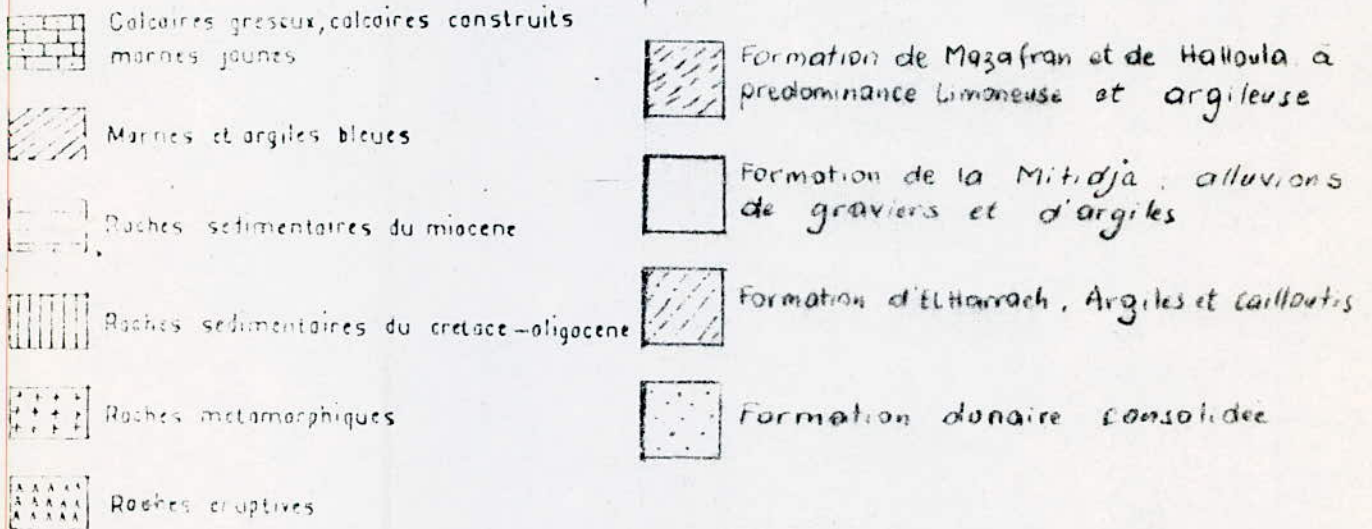 Calcaires greseux, calcaires construits
marnes jaunes
Marnes et argiles bleues
Roches sedimentaires du miocene
Roches sedimentaires du cretace-oligocene
Roches metamorphiques
Roches eruptives
Formation de Mazafran et de Halloula à
predominance Limoneuse et argileuse
Formation de la Mitidja : alluvions
de graviers et d'argiles
Formation d'El Harrach. Argiles et cailloutis
Formation dunaire consolidée